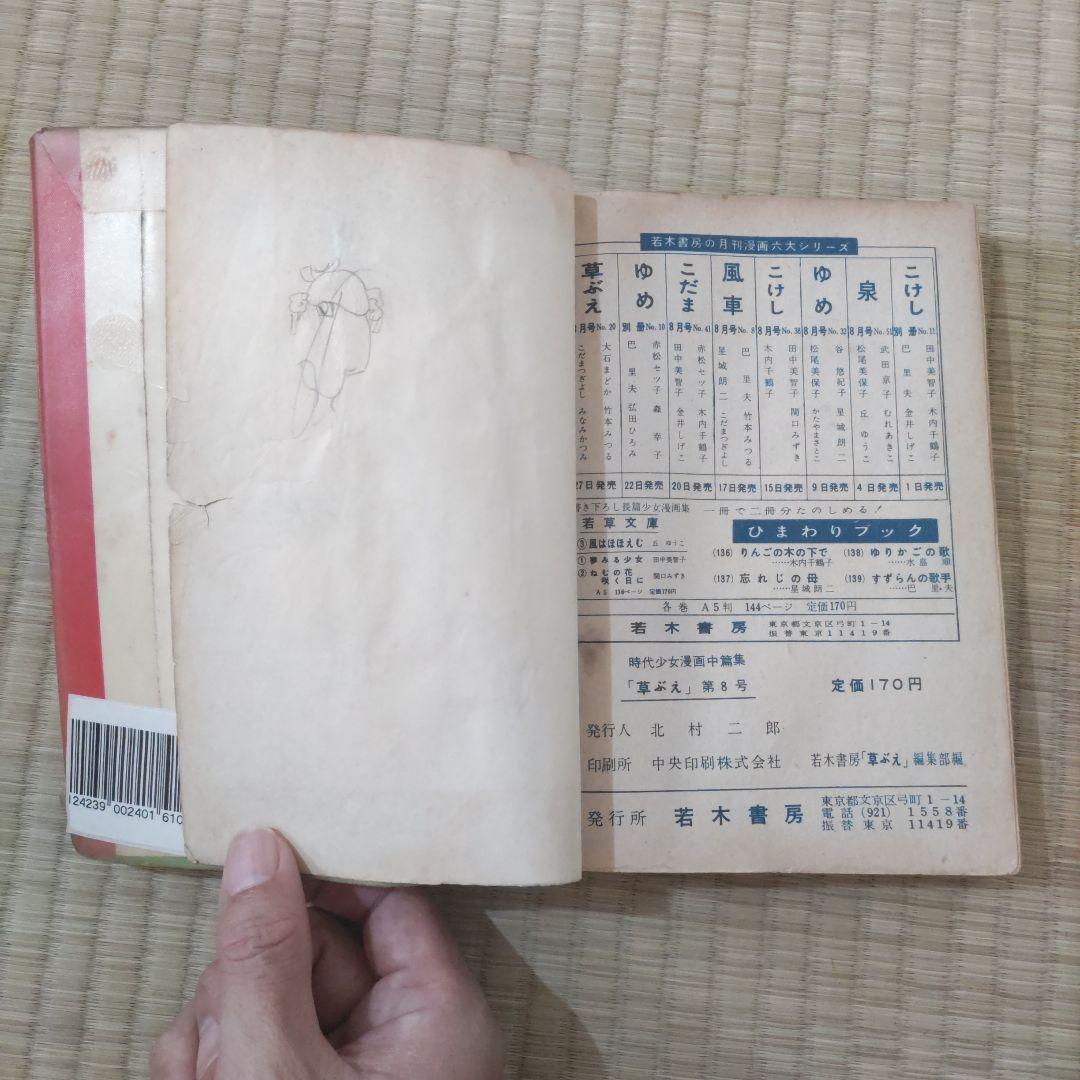 若木書房の月刊漫画六大シリーズ
こけし
別冊No.11
田中美智子 木内千鶴子
巴里夫 金井しげこ
1日発売
泉
8月号No.51
武田京子 むれあきこ
松尾美保子 丘ゆうこ
4日発売
ゆめ
8月号No.32
谷悠紀子 星城朗二
松尾美保子 かたやまさとこ
9日発売
こけし
8月号No.38
田中美智子 関口みずき
木内千鶴子
15日発売
風車
8月号No.8
巴里夫 竹本みつる
星城朗二 こだまつぎよし
17日発売
こだま
8月号No.41
赤松セツ子 木内千鶴子
田中美智子 金井しげこ
20日発売
ゆめ
別冊No.10
赤松セツ子 森幸子
巴里夫 弘田ひろみ
22日発売
草ぶえ
月号No.20
大石まどか 竹本みつる
こだまつぎよし みなみかつみ
27日発売
き下ろし長篇少女漫画集 一冊で二冊分たのしめる!
若草文庫
③風はほほえむ 丘ゆうこ
①夢みる少女 田中美智子
②ねむの花咲く日に 関口みずき
A5 136ページ 定価170円
ひまわりブック
(136) りんごの木の下で ……木内千鶴子
(137) 忘れじの母 ……星城朗二
(138) ゆりかごの歌 ……水島順
(139) すずらんの歌手 ……巴里夫
各巻 A5判 144ページ 定価170円
若木書房 東京都文京区弓町1-14
振替東京11419番
時代少女漫画中篇集
「草ぶえ」第8号 定価170円
発行人 北村二郎
印刷所 中央印刷株式会社 若木書房「草ぶえ」編集部編
発行所 若木書房 東京都文京区弓町1-14
電話(921) 1558番
振替東京 11419番
124239 002401 610